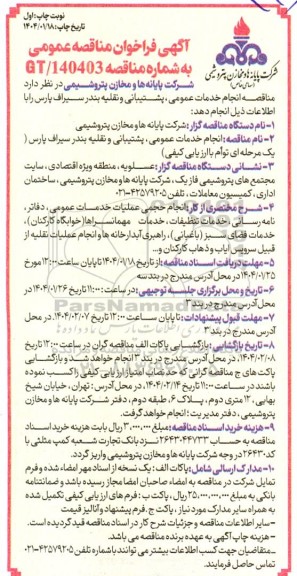 نوبت چاپ: اول
تاریخ چاپ: ۱۴۰۴/۰۱/۱۸
آگهی فراخوان مناقصه عمومی
به شماره مناقصه GT/140403
شرکت پایانه ها و مخازن پتروشیمی
(سهامی خاص)
شرکت پایانه ها و مخازن پتروشیمی در نظر دارد
مناقصه انجام خدمات عمومی، پشتیبانی و نقلیه بندر سیراف پارس را با
اطلاعات ذیل انجام دهد:
۱- نام دستگاه مناقصه گزار: شرکت پایانه ها و مخازن پتروشیمی
۲- نام مناقصه: انجام خدمات عمومی، پشتیبانی و نقلیه بندر سیراف پارس (
یک مرحله ای توأم با ارزیابی کیفی)
۳- نشانی دستگاه مناقصه گزار: عسلویه، منطقه ویژه اقتصادی، سایت
مجتمع های پتروشیمی فاز یک، شرکت پایانه ها و مخازن پتروشیمی، ساختمان
اداری، کمیسیون معاملات، تلفن ۴۲۵۷۹۲۰۵-۰۲۱
۴- شرح مختصری از کار: انجام حجمی عملیات خدمات عمومی، دفاتر،
نامه رسان، خدمات تنظیفات، خدمات مهمانسراها (خوابگاه کارکنان)،
خدمات فضای سبز (باغبانی)، راهبری آبدارخانه ها و انجام عملیات نقلیه از
قبیل سرویس ایاب و ذهاب کارکنان و...
۵- مهلت دریافت اسناد مناقصه: از تاریخ ۱۴۰۴/۰۱/۱۸ تا پایان ساعت ۱۲:۰۰ مورخ
۱۴۰۴/۰۱/۲۵ در محل آدرس مندرج در بند سه
۶- تاریخ و محل برگزاری جلسه توجیهی: در ساعت ۱۱:۰۰ تاریخ ۱۴۰۴/۰۱/۲۶ در
محل آدرس مندرج در بند ۳
۷- مهلت قبول پیشنهادات: تا پایان ساعت ۱۲:۰۰ تاریخ ۱۴۰۴/۰۲/۰۷ در محل
آدرس مندرج در بند ۳
۸- تاریخ بازگشایی: بازگشایی پاکات الف مناقصه گران در ساعت ۱۲:۰۰ تاریخ
۱۴۰۴/۰۲/۰۸ در محل آدرس مندرج در بند ۳ انجام خواهد شد و بازگشایی
پاکت های ج مناقصه گرانی که حدنصاب امتیاز ارزیابی کیفی را کسب نموده
باشند در ساعت ۱۱:۰۰ تاریخ ۱۴۰۴/۰۲/۱۴ در محل آدرس: تهران، خیابان شیخ
بهایی، ۱۲ متری دوم، پلاک ۶، طبقه دوم، دفتر شرکت پایانه ها و مخازن
پتروشیمی، دفتر مدیریت؛ انجام خواهد گرفت.
۹- هزینه خرید اسناد مناقصه: مبلغ ۳،۰۰۰،۰۰۰ ریال بابت هزینه خرید اسناد
مناقصه به حساب ۲۶۴۳۰۴۴۷۳۳ نزد بانک تجارت شعبه کمپ مثلثی با
کد ۲۶۴۳۰ در وجه شرکت پایانه ها و مخازن پتروشیمی واریز گردد.
۱۰- مدارک ارسالی شامل: پاکات الف: یک نسخه از اسناد مهر امضاء شده و فرم
تمایل شرکت در مناقصه به امضاء صاحبان امضا مجاز رسیده باشد و ضمانتنامه
بانکی به مبلغ ۲۵،۰۰۰،۰۰۰،۰۰۰ ریال، پاکت ب: فرم های ارزیابی کیفی تکمیل شده
به همراه سایر مدارک مورد نیاز، پاکت ج. فرم پیشنهاد و آنالیز قیمت
-سایر اطلاعات مناقصه و جزئیات شرح کار در اسناد مناقصه قید گردیده است.
- هزینه چاپ آگهی به عهده برنده مناقصه می باشد.
-متقاضیان جهت کسب اطلاعات بیشتر می توانند با شماره تلفن ۴۲۵۷۹۲۰۵-۰۲۱
تماس حاصل فرمایند.